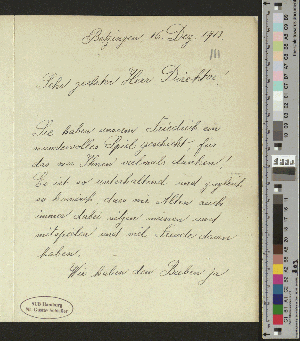 Batzingen, 16. Dez. 1913
Sehr geehrter Herr Direktor!
Sie haben unserem Friedrich ein
wundervolles Spiel geschickt, für
das wir Ihnen vielmals danken!
Es ist so unterhaltend und zugleich
so komisch, dass wir Alten auch
immer dabei sein und
mitspielen und viel Freude daran
haben.
Wir haben den Buben ja
SUB Hamburg